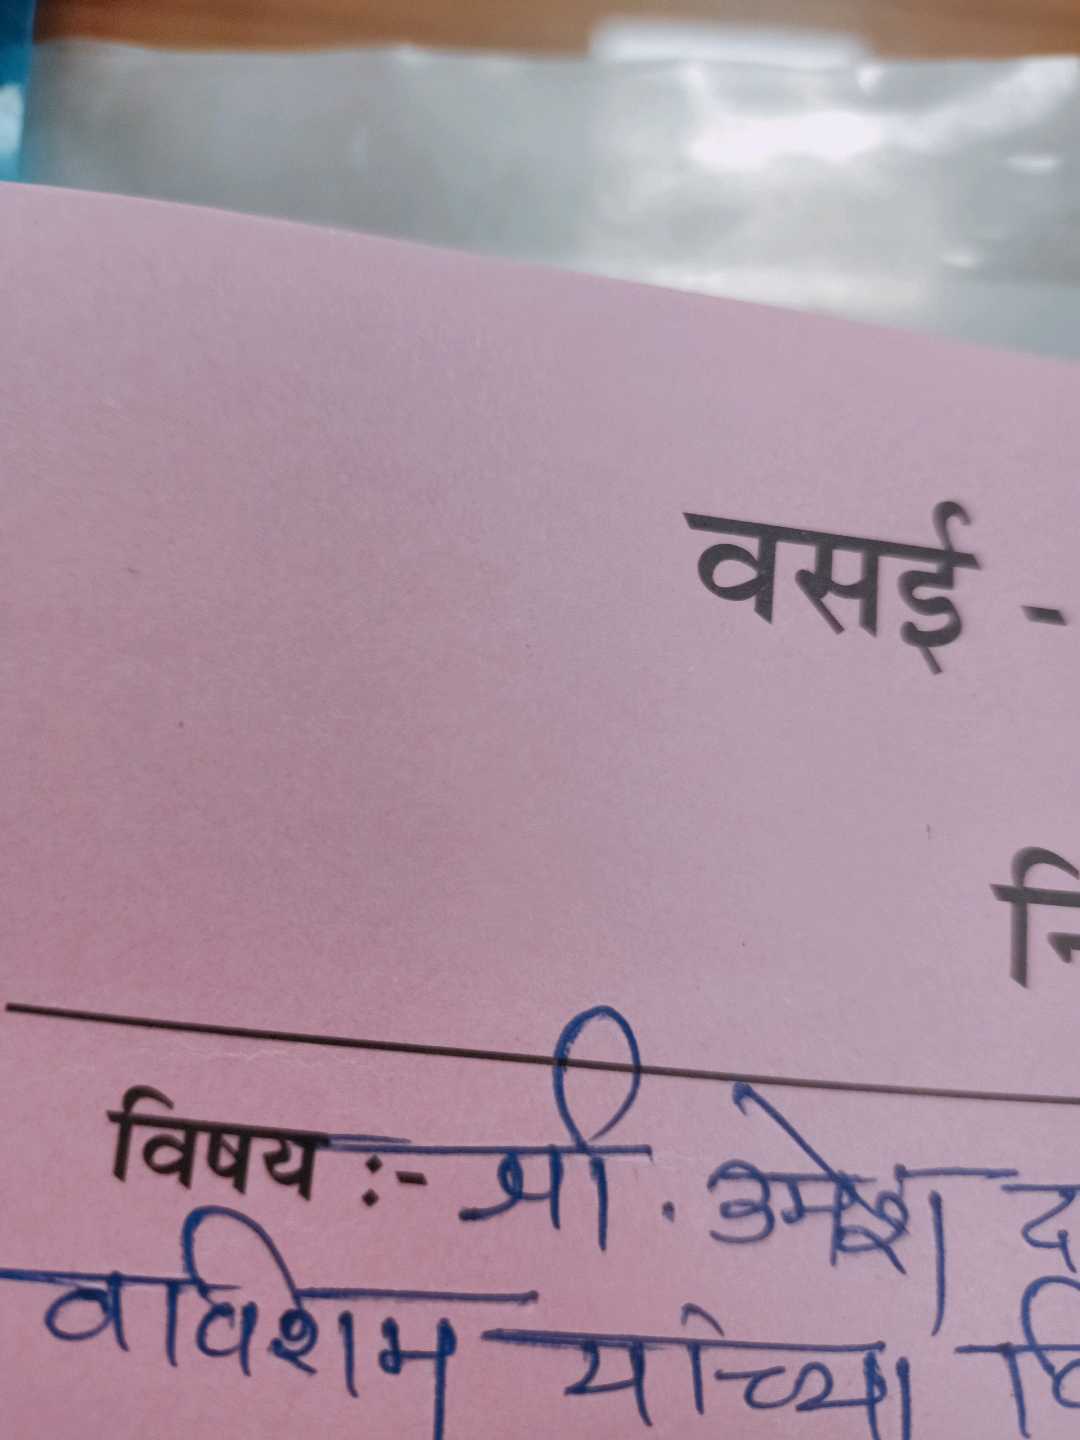 वसई -
नि
विषय :- श्री. उमेश द
वाघिशम यांच्या वि